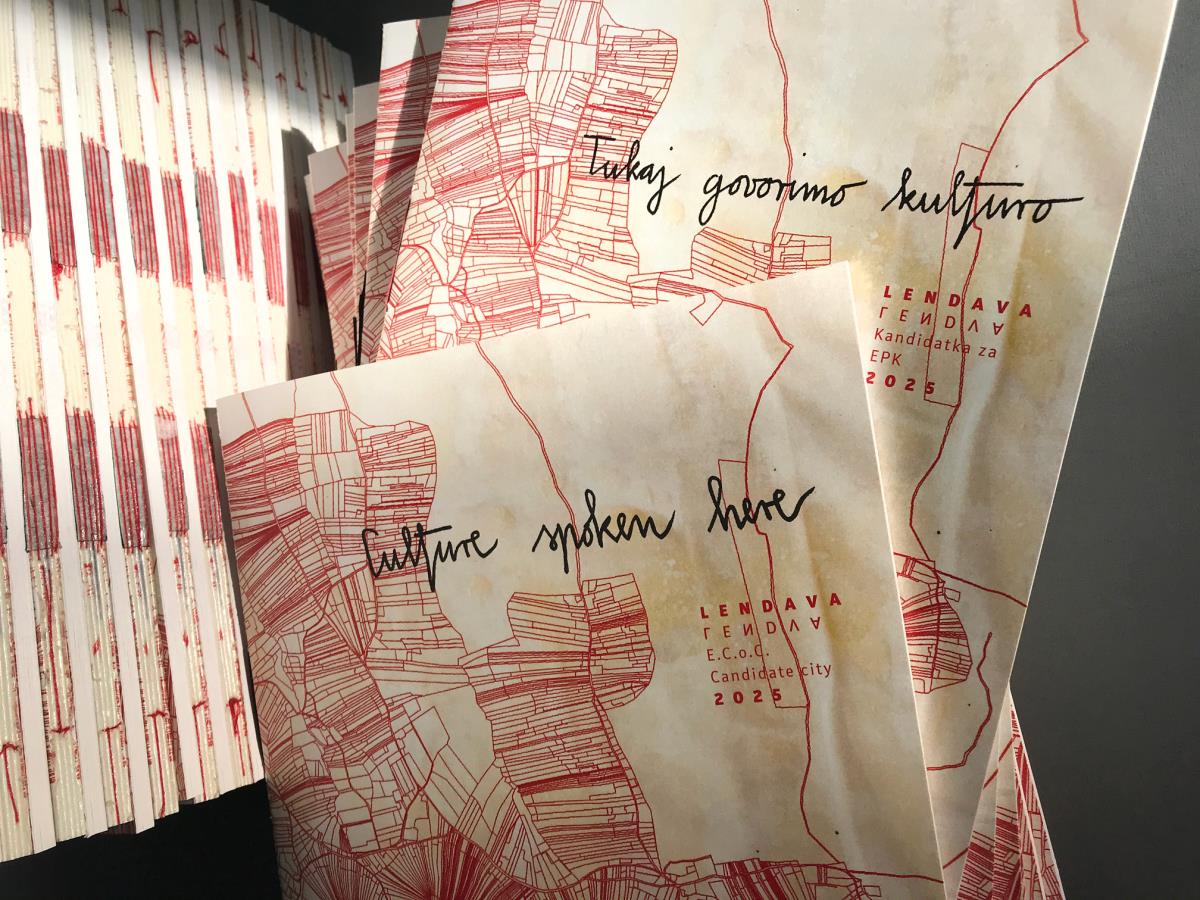 Tukaj govorimo kulturo
LENDAVA
LENDVA
Kandidatka za
EPK
2025
Culture spoken here
LENDAVA
LENDVA
E.C.o.C.
Candidate city
2025